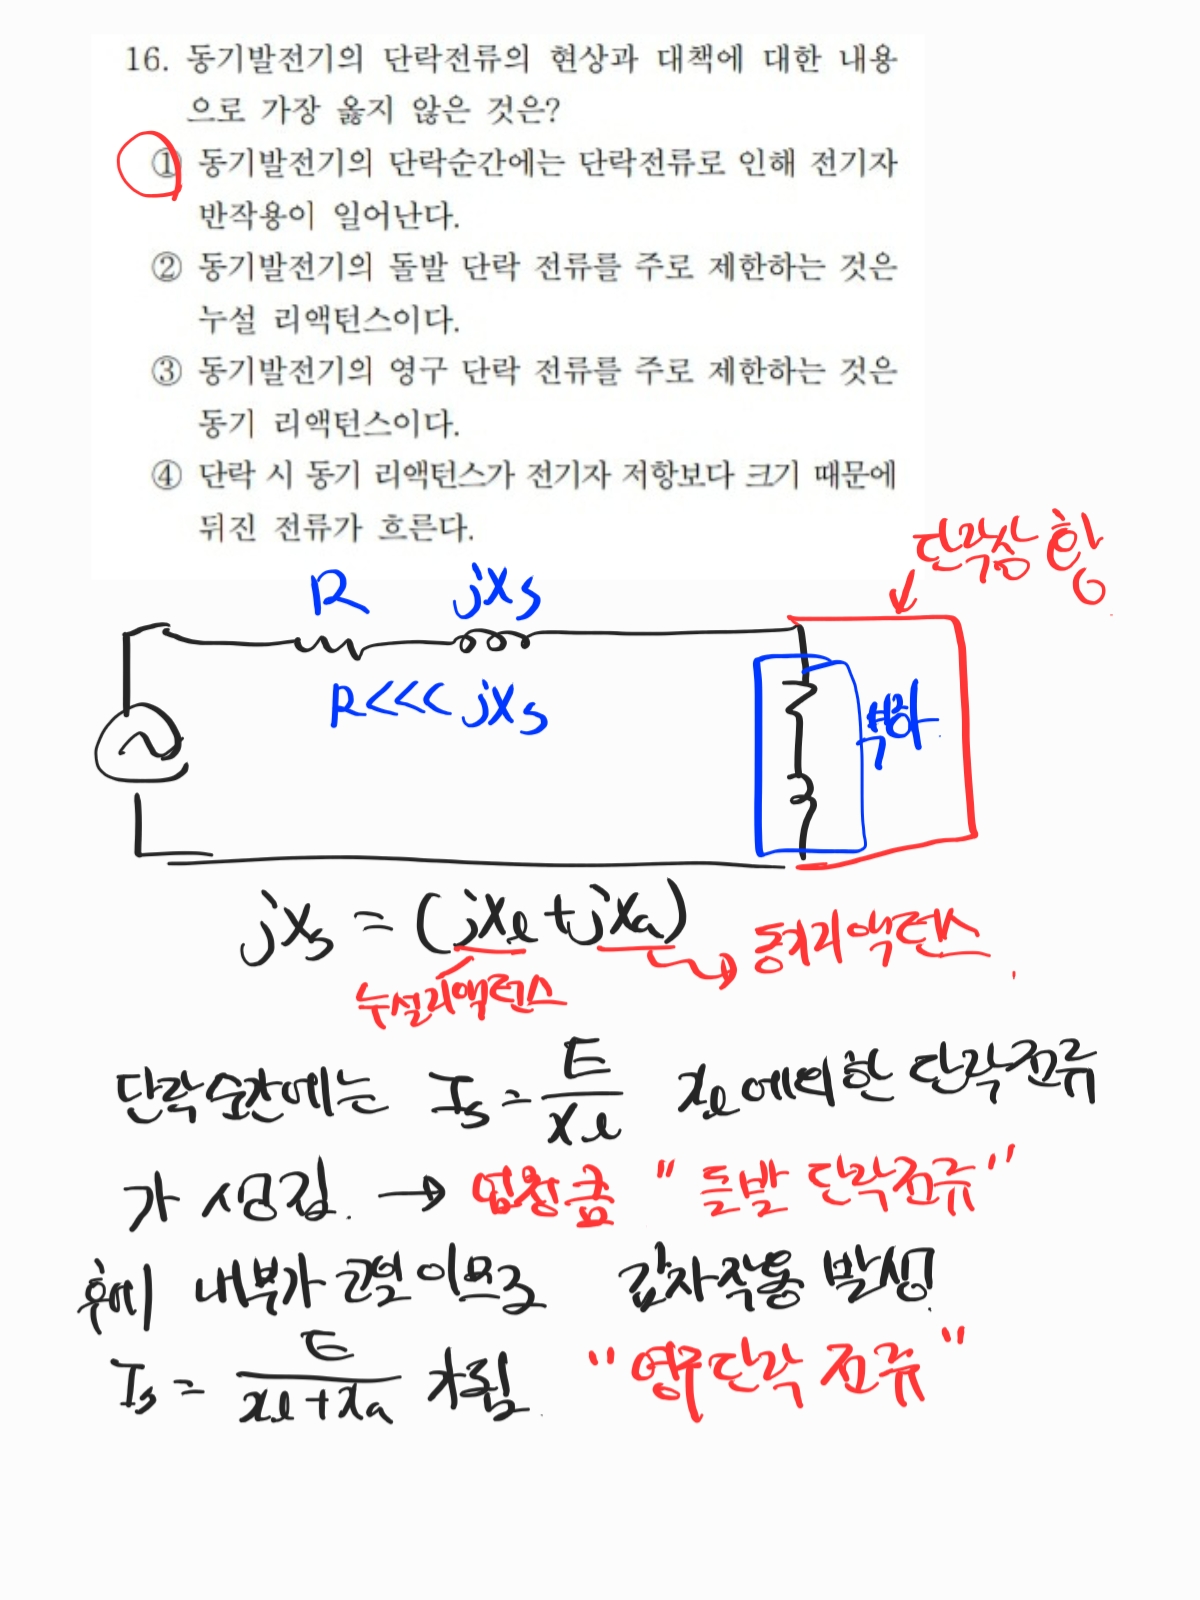 16. 동기발전기의 단락전류의 현상과 대책에 대한 내용
으로 가장 옳지 않은 것은?
① 동기발전기의 단락순간에는 단락전류로 인해 전기자
반작용이 일어난다.
② 동기발전기의 돌발 단락 전류를 주로 제한하는 것은
누설 리액턴스이다.
③ 동기발전기의 영구 단락 전류를 주로 제한하는 것은
동기 리액턴스이다.
④ 단락 시 동기 리액턴스가 전기자 저항보다 크기 때문에
뒤진 전류가 흐른다.
단락상황
R jXs
R<<< jXs
부하
jXs = (jXℓ+jXa) 동기리액턴스
누설리액턴스
단락순간에는 Is = E/xℓ xℓ에의한 단락전류
가 생김. → 엄청큼 "돌발 단락전류"
후에 내부가 코일이므로 감자작용 발생.
Is = E/(xℓ+xa) 가됨. "영구단락 전류"